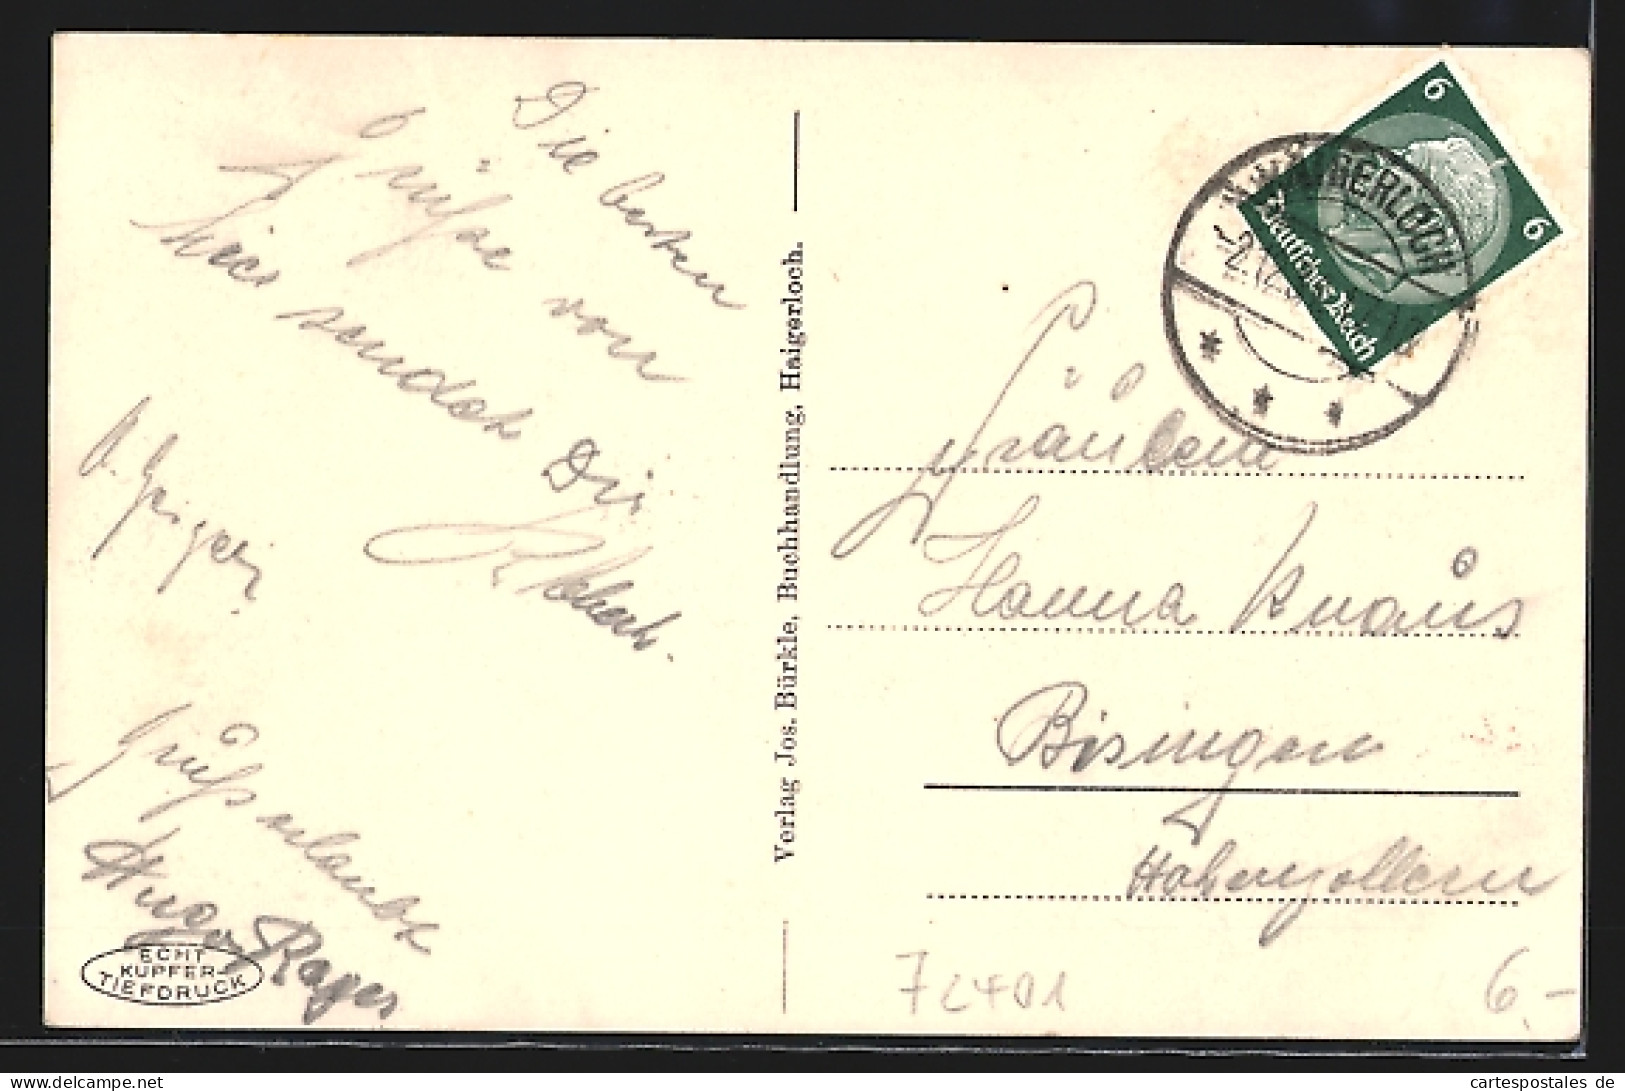 Die besten
Grüße von
hier sendet Dir
Robert.
A. Geiger.
Gruß erlaubt
Hugo Rager
ECHT
KUPFER-
TIEFDRUCK
Verlag Jos. Bürkle, Buchhandlung, Haigerloch.
6
6
Deutsches Reich
HAIGERLOCH
Fräulein
Hanna Knaus
Bisingen
Hohenzollern
72401
6.-
cartespostales de